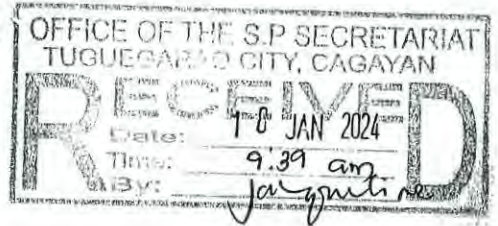 OFFICE OF THE S.P SECRETARIAT
TUGUEGARAO CITY, CAGAYAN
RECEIVED
Date: JAN 2024
Time: 9:39 am
By: